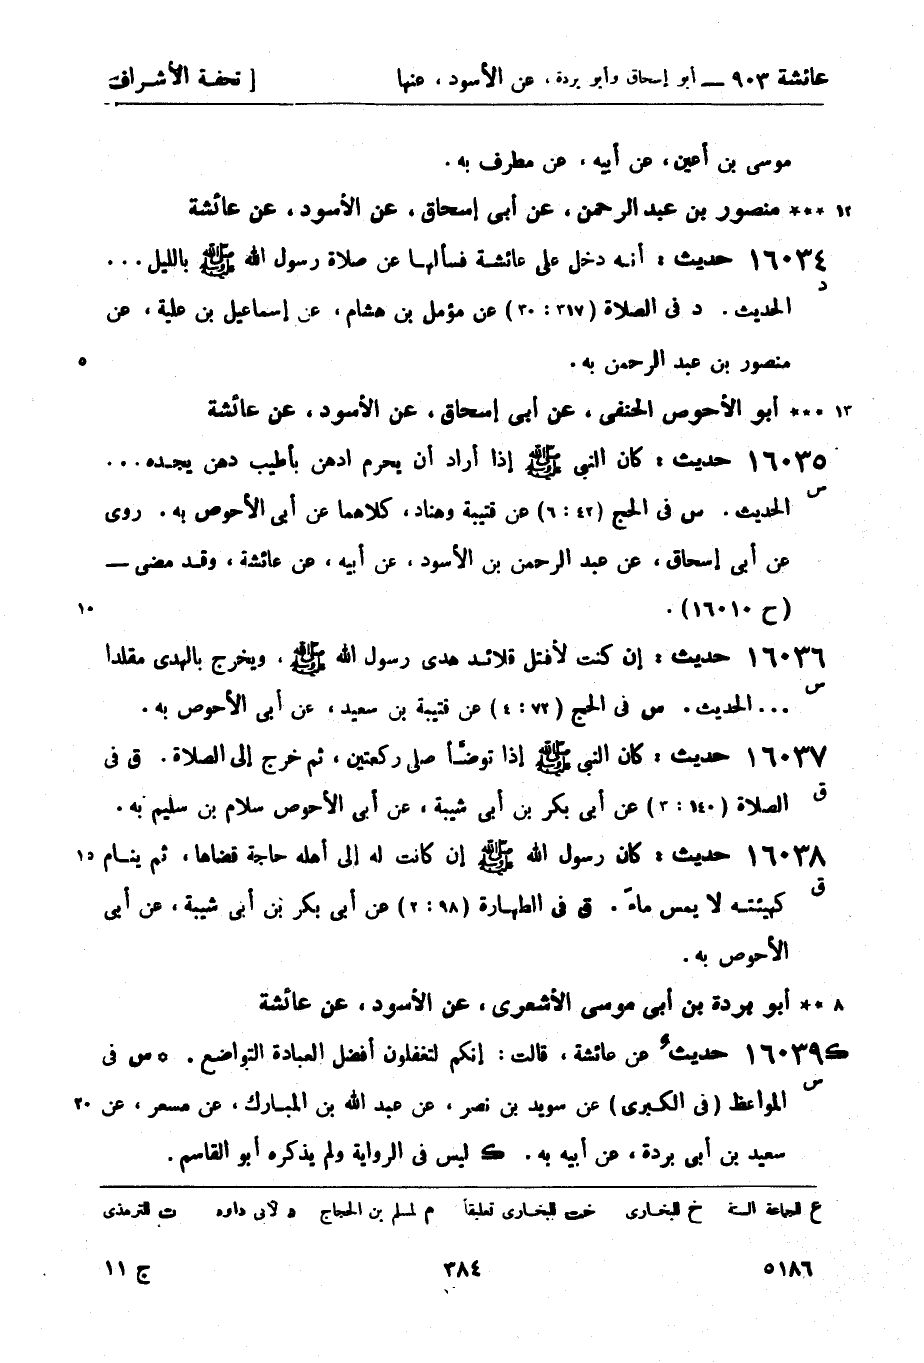 عائشة ٩٠٣ — أبو إسحاق وأبو بردة ، عن الأسود ، عنها [ تحفة الأشراف
موسى بن أعين، عن أبيه ، عن مطرف به .
١٢ *** منصور بن عبد الرحمن، عن أبى إسحاق، عن الأسود، عن عائشة
١٦٠٣٤ حديث : أنه دخل على عائشة فسألها عن صلاة رسول الله ﷺ بالليل ...
د الحديث . د فى الصلاة (٣١٧ : ٣٠) عن مؤمل بن هشام، عن إسماعيل بن علية، عن
منصور بن عبد الرحمن به . ٥
١٣ *** أبو الأحوص الحنفى ، عن أبى إسحاق، عن الأسود، عن عائشة
١٦٠٣٥ حديث : كان النبى ﷺ إذا أراد أن يحرم ادهن بأطيب دهن يجده ...
س الحديث . س فى الحج (٤٢ : ٦) عن قتيبة وهناد، كلاهما عن أبى الأحوص به . روى
عن أبى إسحاق، عن عبد الرحمن بن الأسود، عن أبيه، عن عائشة، وقد مضى —
(ح ١٦٠١٠) . ١٠
١٦٠٣٦ حديث : إن كنت لأفتل قلائد هدى رسول الله ﷺ ، ويخرج بالهدى مقلدا
س ... الحديث . س فى الحج (٧٢ : ٤) عن قتيبة بن سعيد، عن أبى الأحوص به .
١٦٠٣٧ حديث : كان النبى ﷺ إذا توضأ صلى ركعتين ، ثم خرج إلى الصلاة . ق فى
ق الصلاة (١٤٠ : ٣) عن أبى بكر بن أبى شيبة، عن أبى الأحوص سلام بن سليم به .
١٦٠٣٨ حديث : كان رسول الله ﷺ إن كانت له إلى أهله حاجة قضاها، ثم ينام ١٥
ق كهيئته لا يمس ماءً . ق فى الطهارة (٩٨ : ٢) عن أبى بكر بن أبى شيبة، عن أبى
الأحوص به .
٨ ** أبو بردة بن أبى موسى الأشعرى، عن الأسود، عن عائشة
ك ١٦٠٣٩ حديث عن عائشة، قالت : إنكم لتغفلون أفضل العبادة التواضع . ٥ س فى
س المواعظ (فى الكبرى) عن سويد بن نصر، عن عبد الله بن المبارك، عن مسعر، عن ٢٠
سعيد بن أبى بردة، عن أبيه به . ك ليس فى الرواية ولم يذكره أبو القاسم .
ع للجماعة الستة خ للبخارى خت للبخارى تعليقاً م لمسلم بن الحجاج د لأبى داود ت للترمذى
٥١٨٦ ٣٨٤ ج ١١